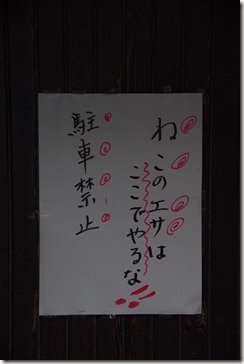 ねこのエサは
ここでやるな!!!
駐車禁止